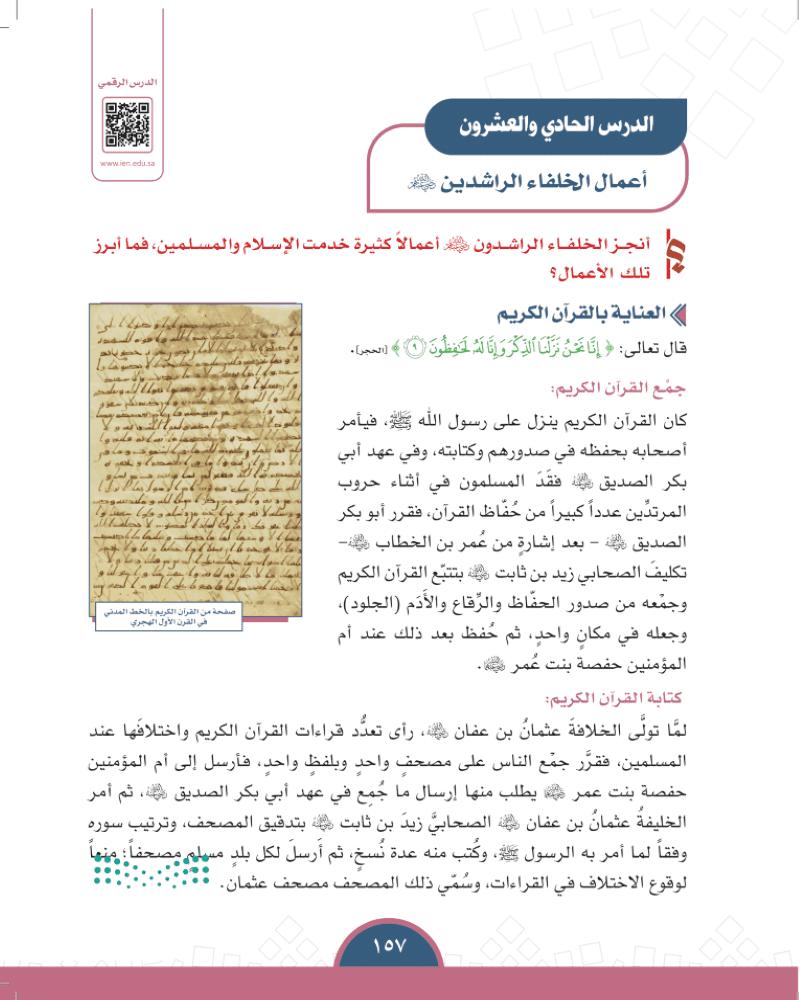 الدرس الرقمي
www.ien.edu.sa
الدرس الحادي والعشرون
أعمال الخلفاء الراشدين رضي الله عنهم
أنجـز الخلفـاء الراشـدون رضي الله عنهم أعمالاً كثيرة خدمت الإسـلام والمسـلمين، فما أبرز
تلك الأعمال؟
العناية بالقرآن الكريم
قال تعالى: ﴿ إِنَّا نَحْنُ نَزَّلْنَا ٱلذِّكْرَ وَإِنَّا لَهُۥ لَحَٰفِظُونَ ٩ ﴾ [الحجر].
جمْع القرآن الكريم:
كان القرآن الكريم ينزل على رسول الله ﷺ، فيأمر
أصحابه بحفظه في صدورهم وكتابته، وفي عهد أبي
بكر الصديق رضي الله عنه فقَدَ المسلمون في أثناء حروب
المرتدِّين عدداً كبيراً من حُفّاظ القرآن، فقرر أبو بكر
الصديق رضي الله عنه – بعد إشارةٍ من عُمر بن الخطاب رضي الله عنه–
تكليفَ الصحابي زيد بن ثابت رضي الله عنه بتتبّع القرآن الكريم
وجمْعه من صدور الحفّاظ والرِّقاع والأَدَم (الجلود)،
وجعله في مكانٍ واحدٍ، ثم حُفظ بعد ذلك عند أم
المؤمنين حفصة بنت عُمر رضي الله عنها.
صفحة من القرآن الكريم بالخط المدني
في القرن الأول الهجري
كتابة القرآن الكريم:
لمَّا تولَّى الخلافةَ عثمانُ بن عفان رضي الله عنه، رأى تعدُّد قراءات القرآن الكريم واختلافَها عند
المسلمين، فقرَّر جمْع الناس على مصحفٍ واحدٍ وبلفظٍ واحدٍ، فأرسل إلى أم المؤمنين
حفصة بنت عمر رضي الله عنها يطلب منها إرسال ما جُمِع في عهد أبي بكر الصديق رضي الله عنه، ثم أمر
الخليفةُ عثمانُ بن عفان رضي الله عنه الصحابيَّ زيدَ بن ثابت رضي الله عنه بتدقيق المصحف، وترتيب سوره
وفقاً لما أمر به الرسول ﷺ، وكُتب منه عدة نُسخٍ، ثم أَرسلَ لكل بلدٍ مسلمٍ مصحفاً؛ منعاً
لوقوع الاختلاف في القراءات، وسُمّي ذلك المصحف مصحف عثمان.
١٥٧